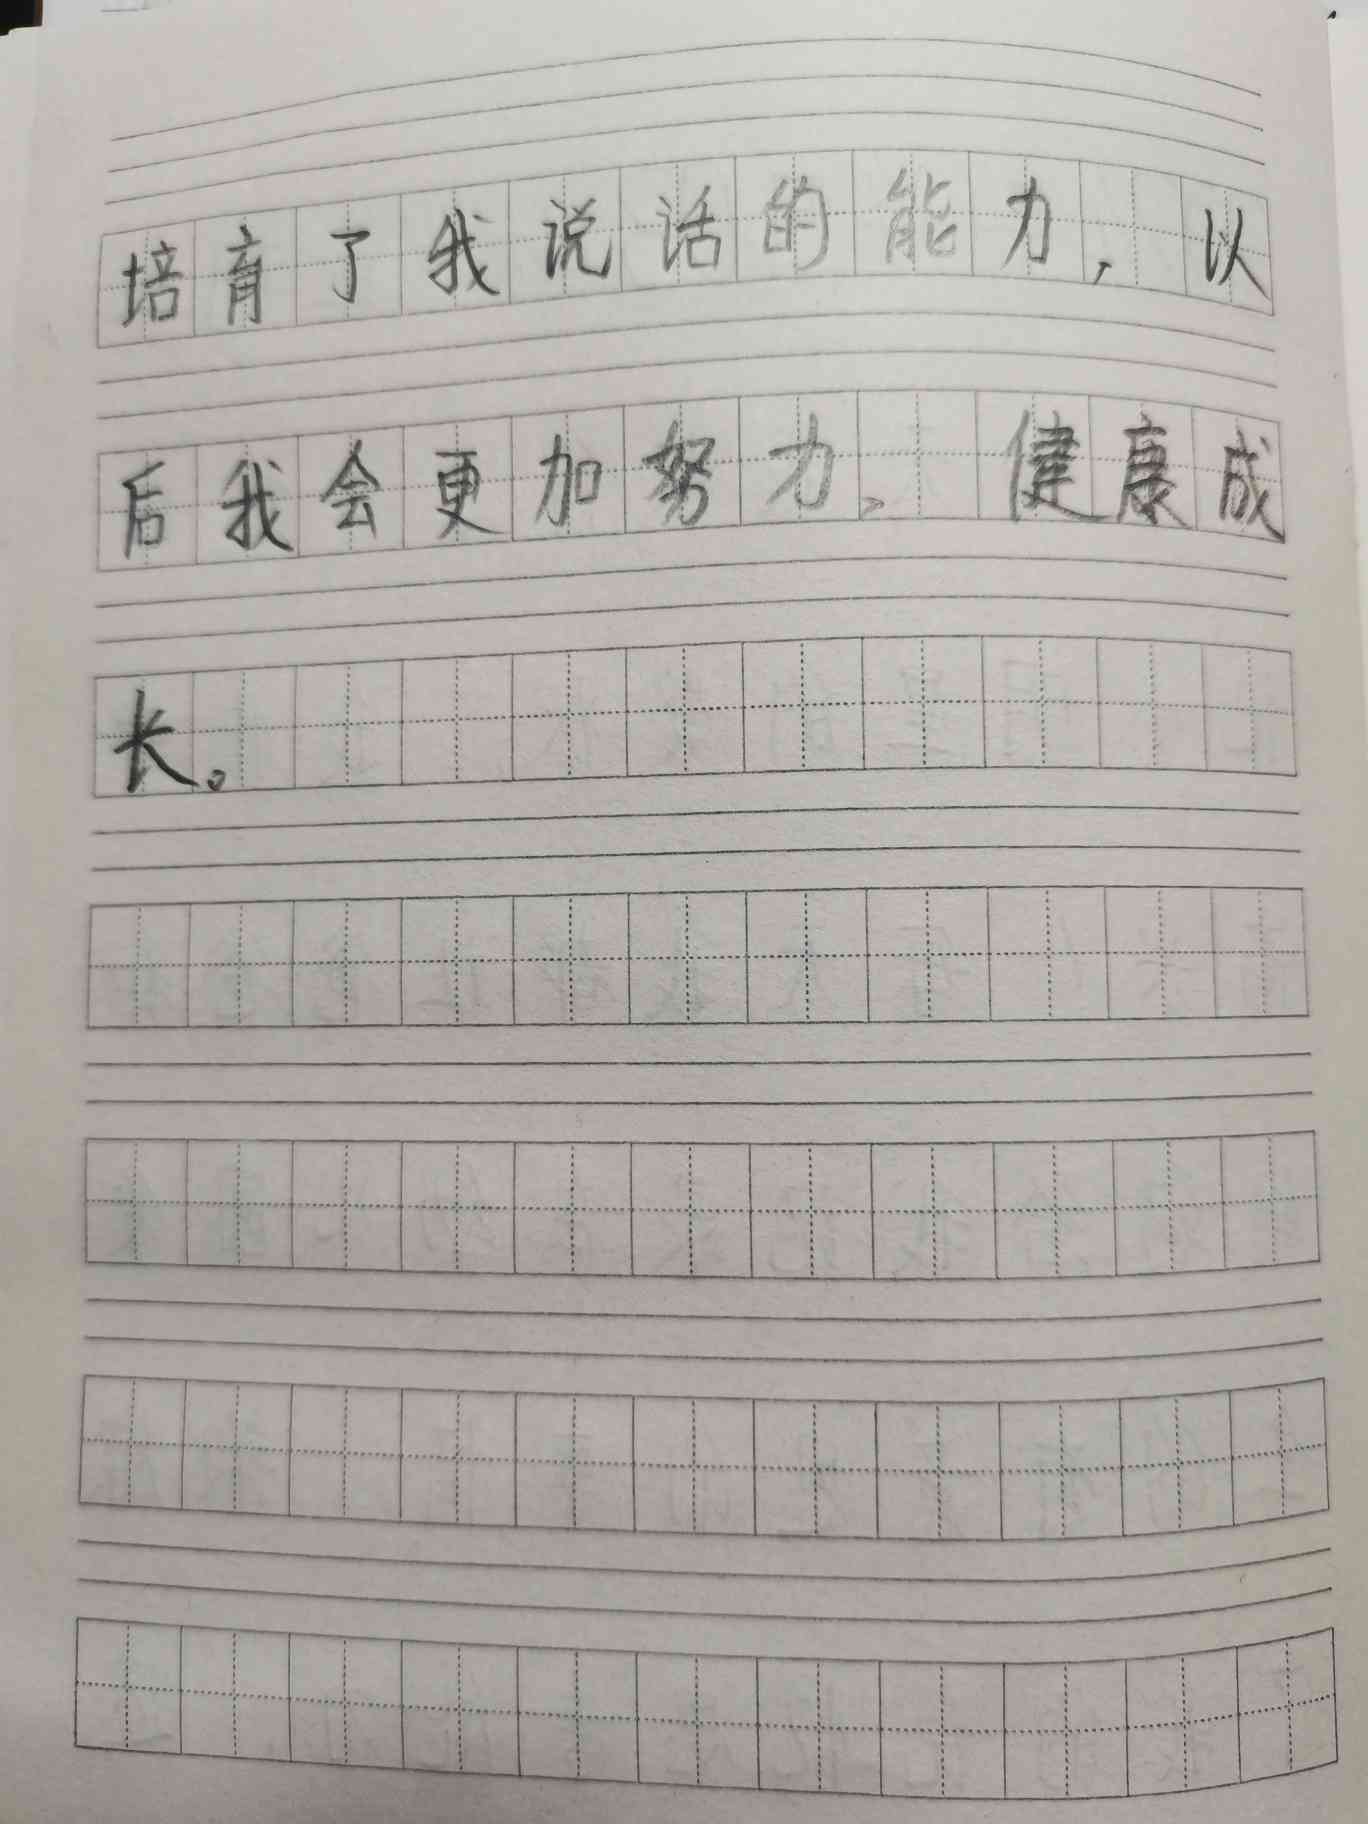 培育了我说话的能力，以
后我会更加努力、健康成
长。